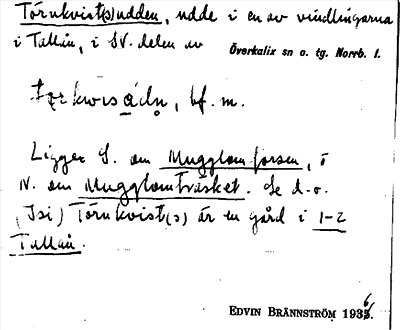 Törnkvist(s)udden, udde i en av vindlingarna
i Tallån, i SV. delen av
Överkalix sn o. tg. Norrb. l.
bf. m.
Ligger S. om Mugglomforsen, o
N. om Mugglomträsket. Se d. o.
(Isi) Törnkvist(s) är en gård i 1-2
Tallån.
EDVIN BRÄNNSTRÖM 1936